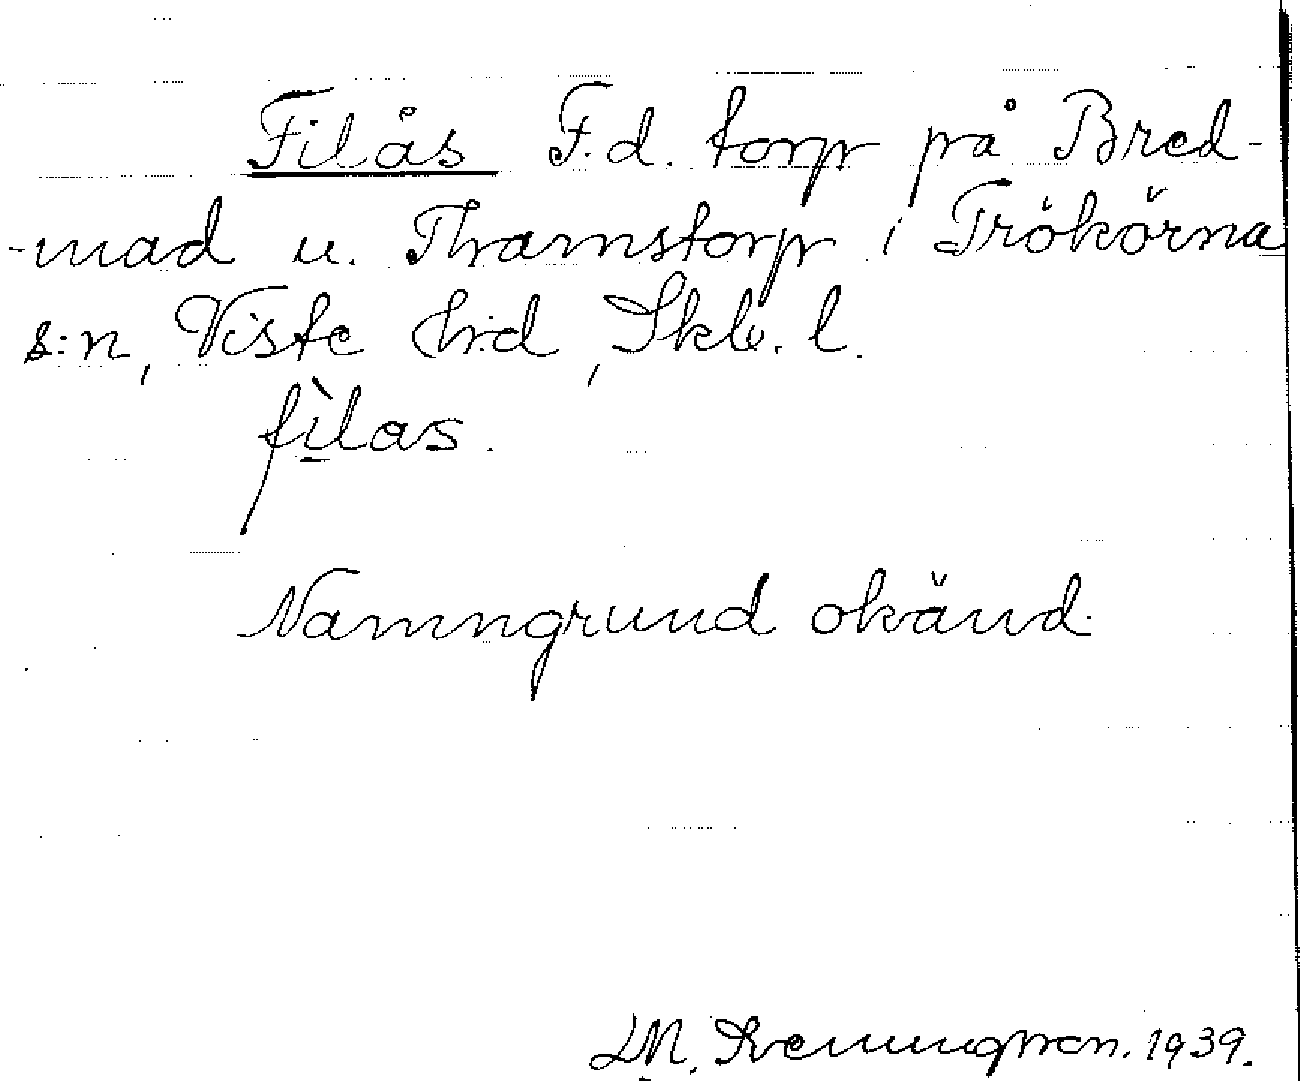 Filås F.d. torp på Bred-
-mad u. Thamstorp i Trökörna
s:n, Viste hd, Skb. l.
fìlas.
Namngrund okänd.
Svenungsson. 1939.